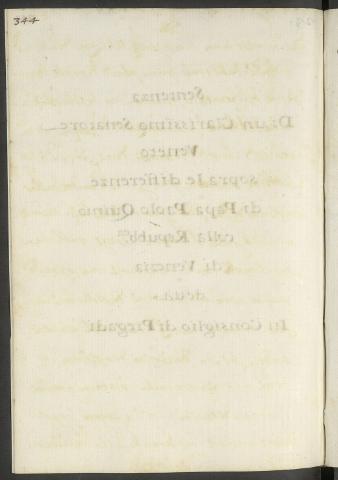 344
Sentenza
Di un Clarissimo Senatore
Veneto
sopra le differenze
di Papa Paolo Quinto
colla Repubb.ca
di Venezia
detta
In Consiglio di Pregadi